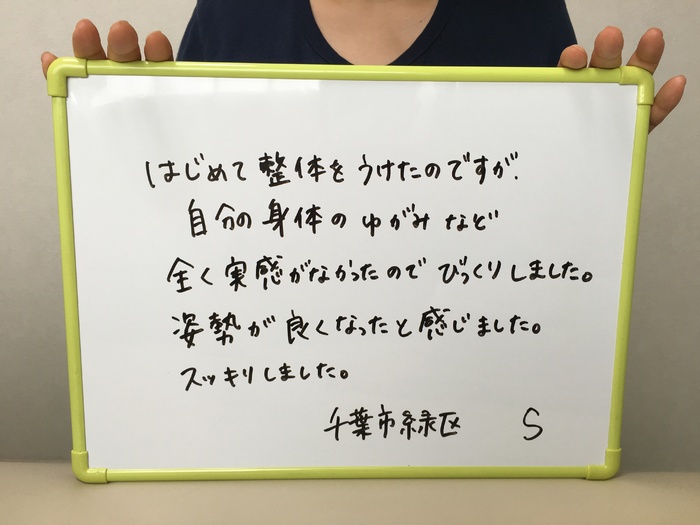 はじめて整体をうけたのですが、
自分の身体のゆがみなど
全く実感がなかったのでびっくりしました。
姿勢が良くなったと感じました。
スッキリしました。
千葉市緑区 S